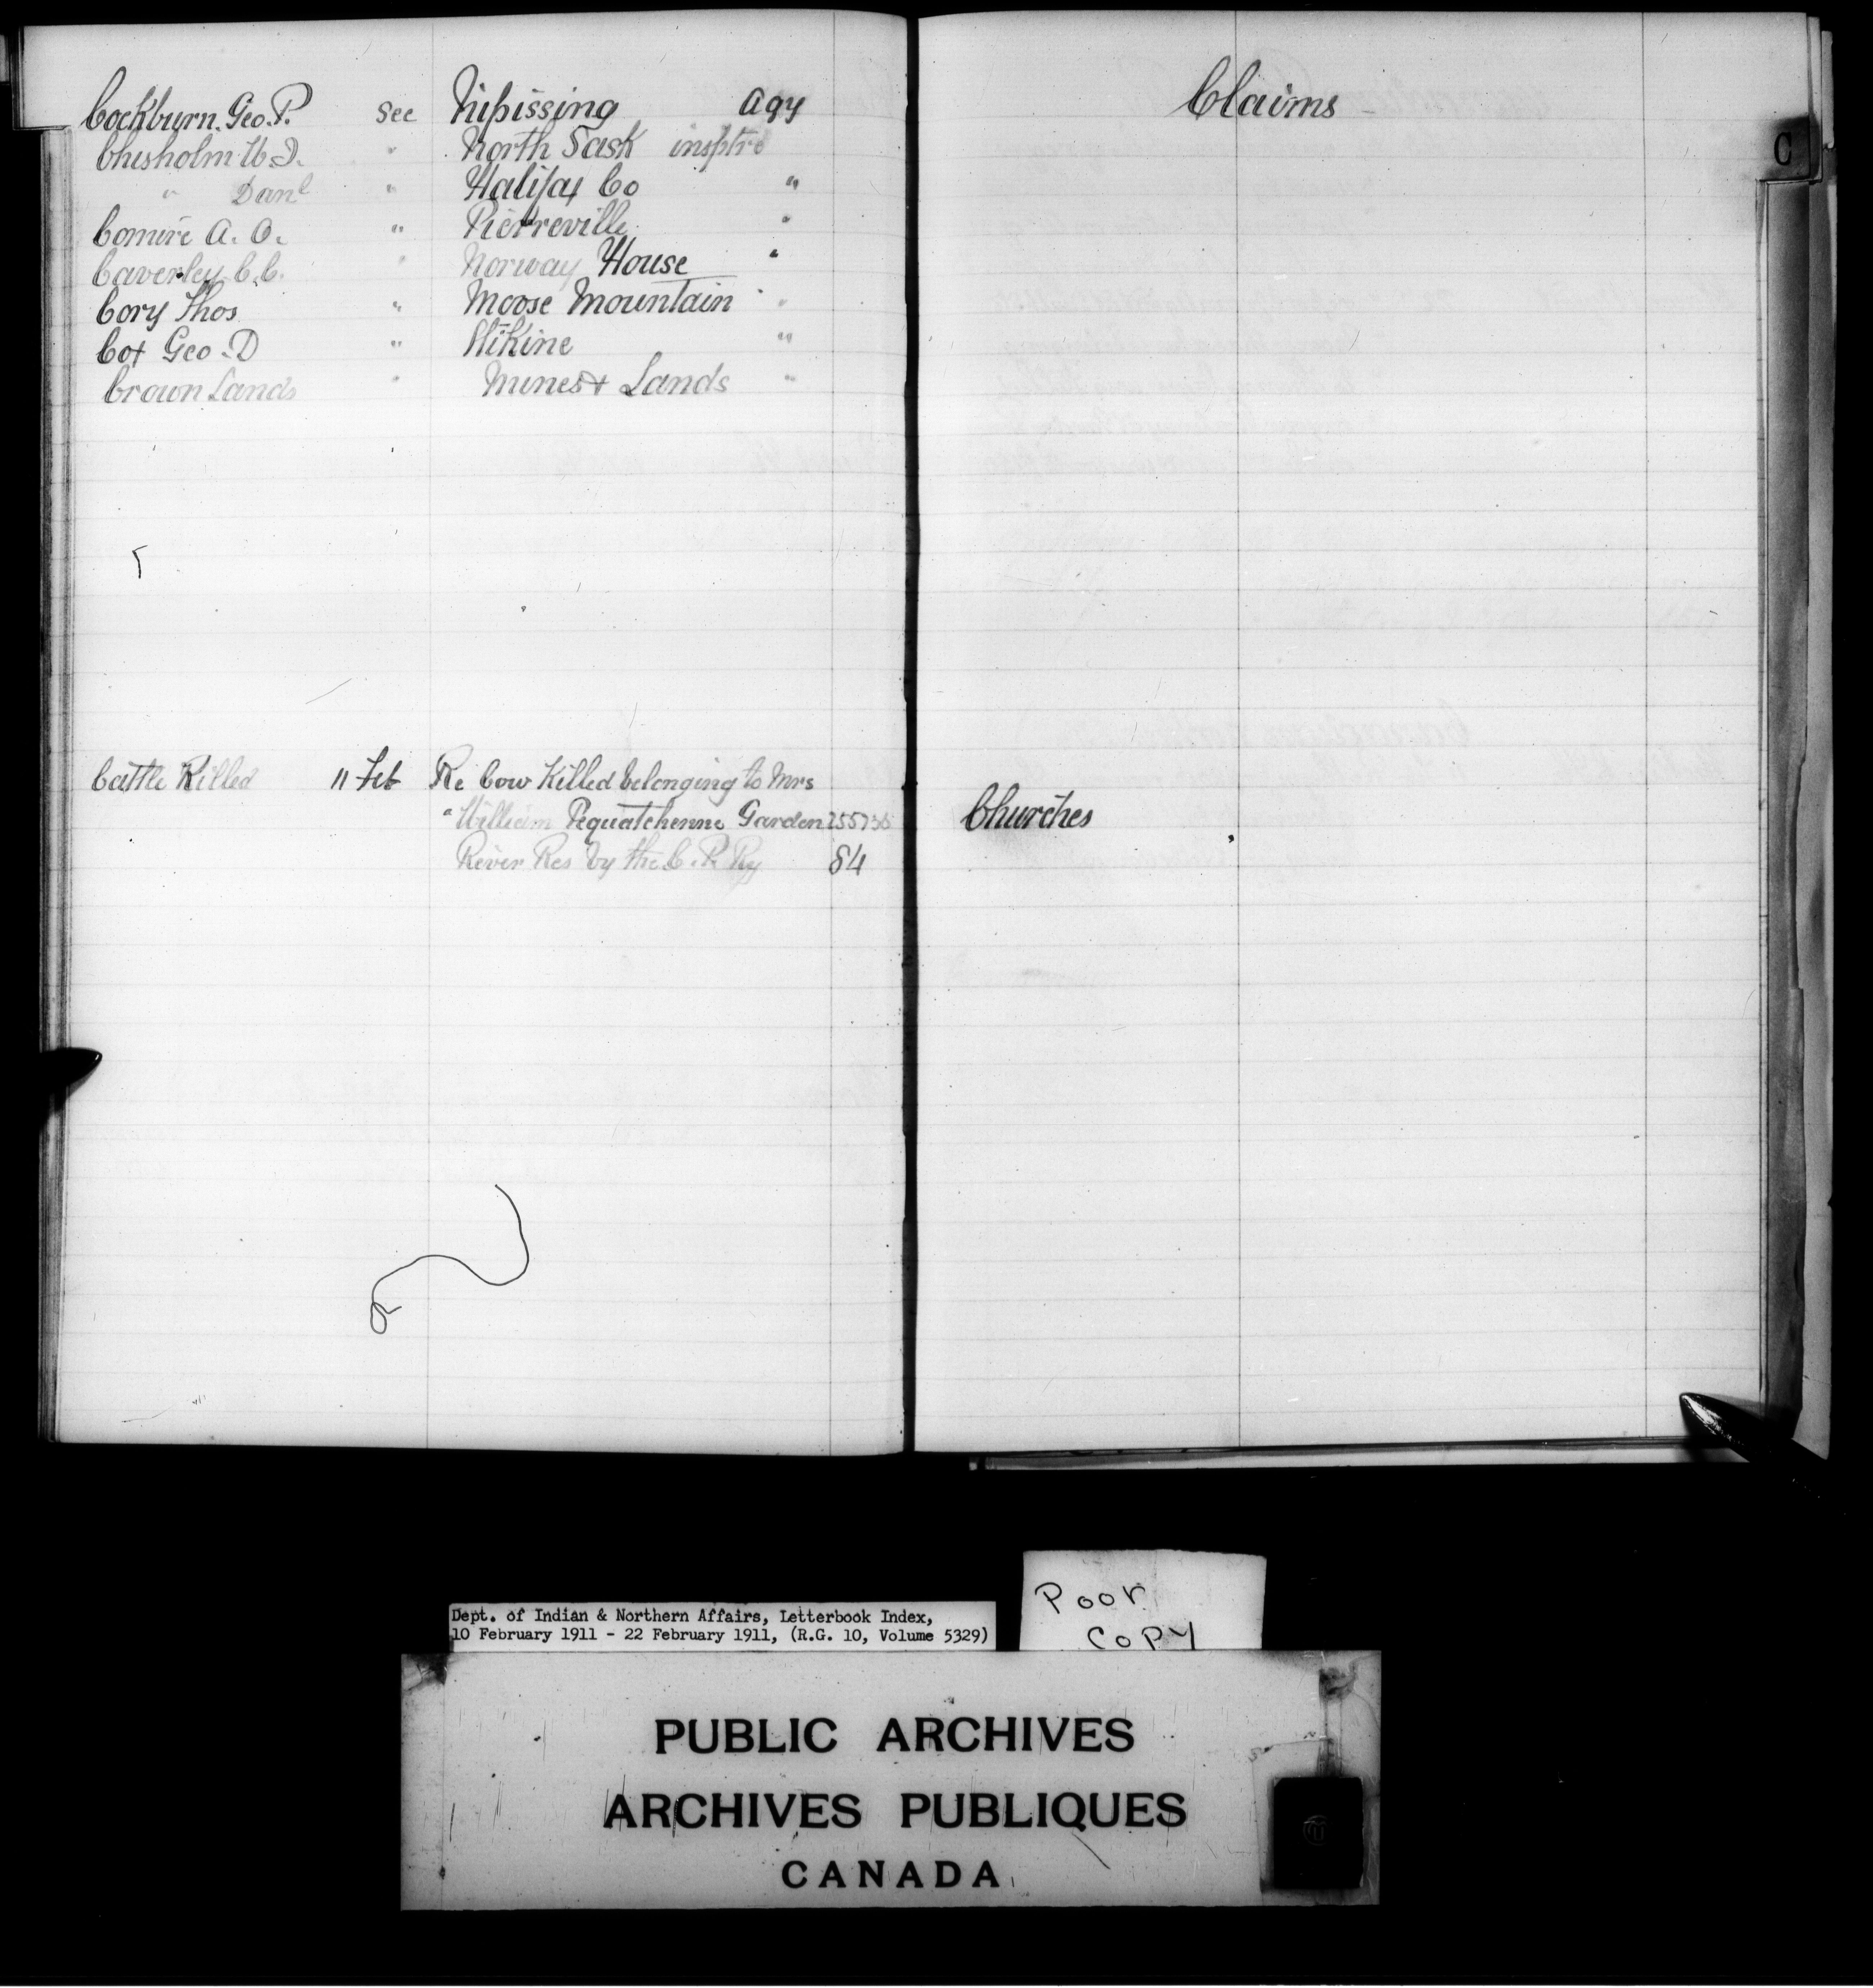 Cockburn. Geo. P. See Nipissing Agy
Chisholm W. J. " North Sask insptr
" Danl " Halifax Co "
Comire A. O. " Pierreville "
Caverley C. C. " Norway House "
Cory Thos " Moose Mountain "
Cox Geo. D " Stikine "
Crown Lands " Mines & Lands "
Cattle Killed 11 Feb Re Cow Killed belonging to Mrs
" William Pequatchenne Garden 255735
River Res by the C. P. Ry 84
Claims
C
Churches
Dept. of Indian & Northern Affairs, Letterbook Index,
10 February 1911 - 22 February 1911, (R.G. 10, Volume 5329)
Poor
Copy
PUBLIC ARCHIVES
ARCHIVES PUBLIQUES
CANADA